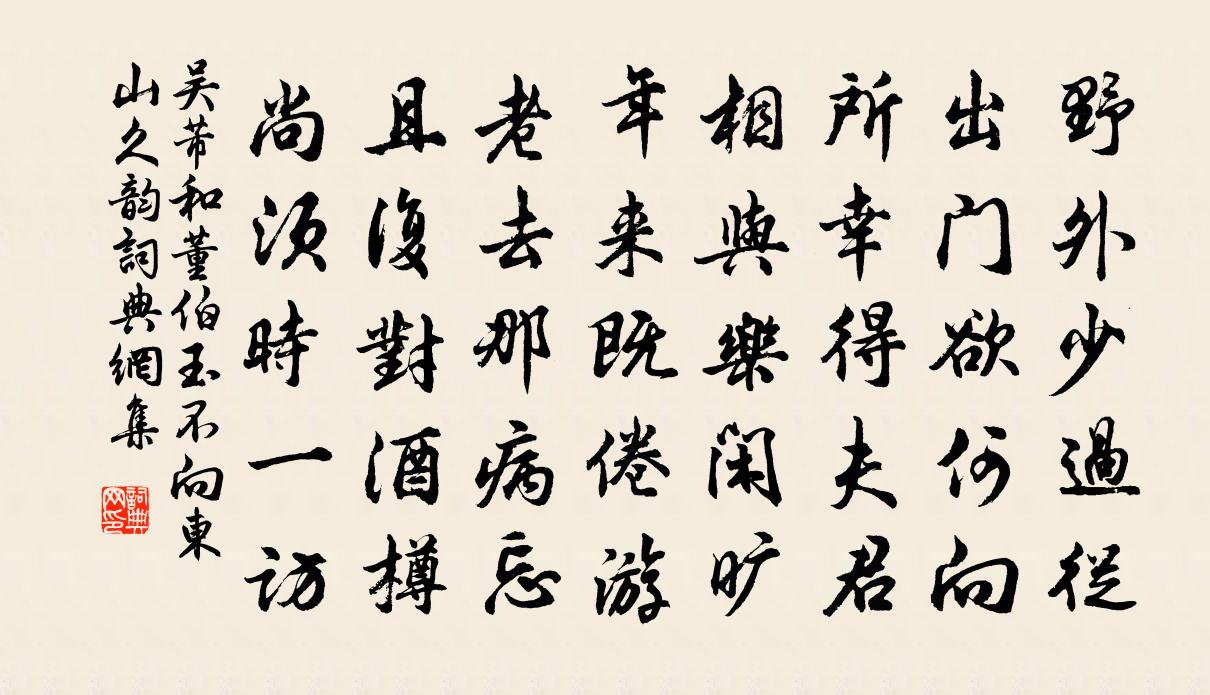 野外少過從
出门欲何向
所幸得夫君
相與樂闲旷
年来既倦游
老去那病忘
且復對酒樽
尚须時一访
吴芾和董伯玉不向東
山久韵詞典網集
詞典网印